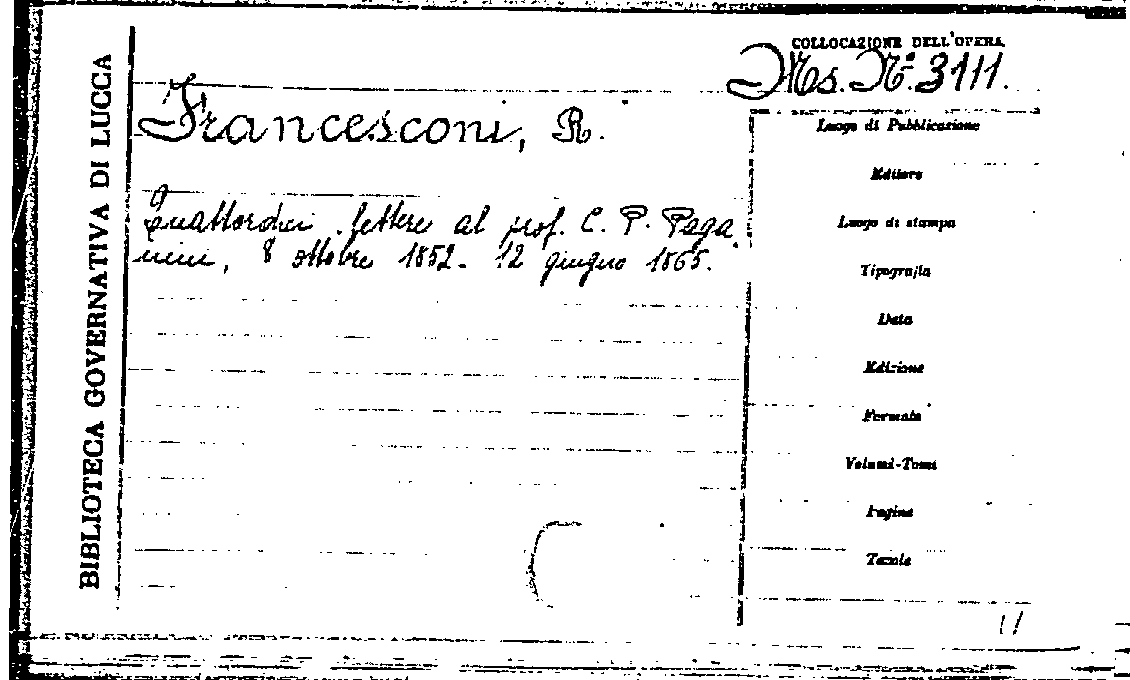 BIBLIOTECA GOVERNATIVA DI LUCCA
COLLOCAZIONE DELL'OPERA
Ms. N° 3111.
Francesconi, R.
Quattordici lettere al prof. C. P. Paga
nini, 8 ottobre 1852 - 12 giugno 1865.
Luogo di Pubblicazione
Editore
Luogo di stampa
Tipografia
Data
Edizione
Formato
Volumi-Tomi
Pagine
Tavole